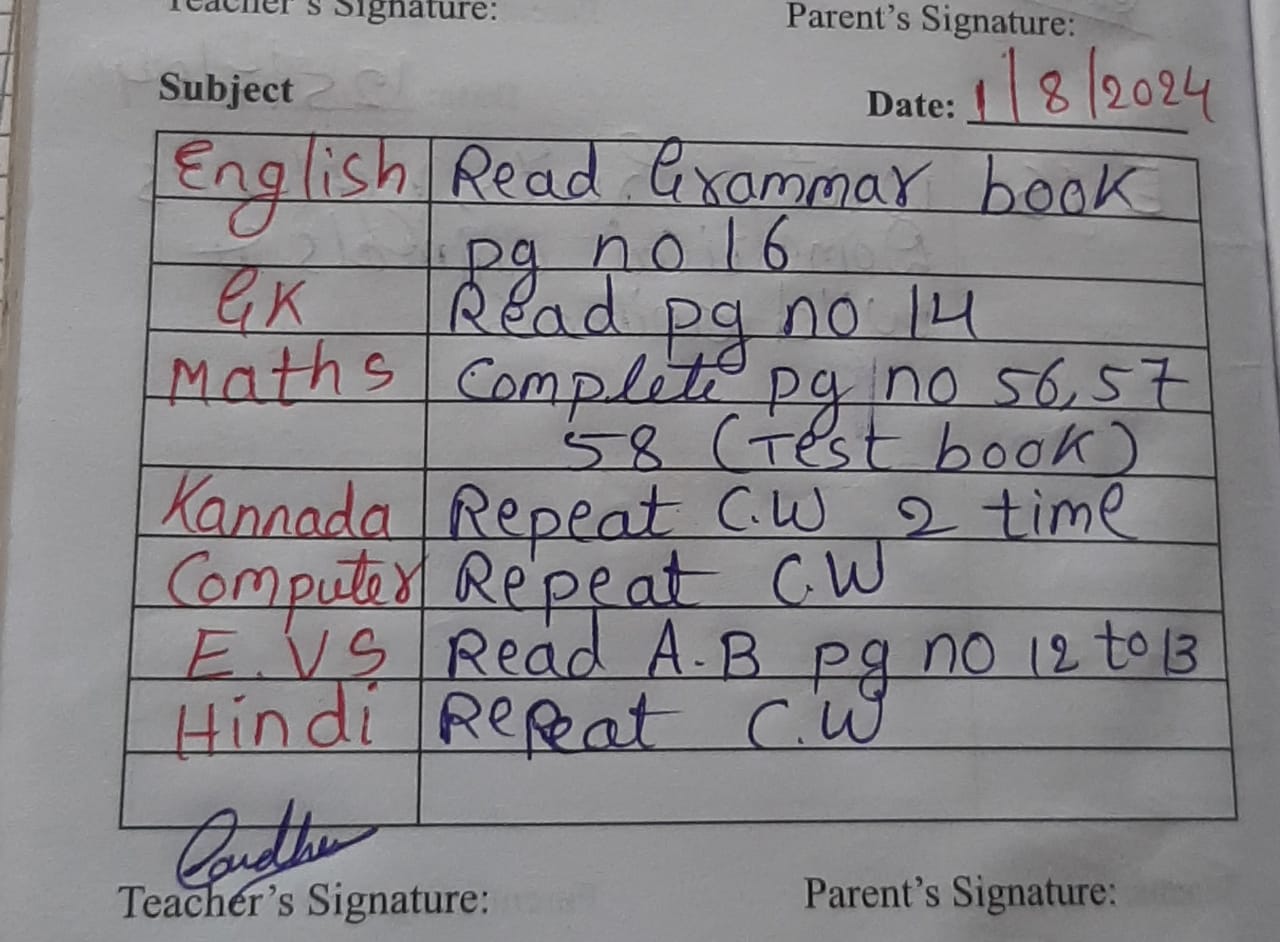 Teacher's Signature: Parent's Signature:
Subject Date: 1/8/2024
English Read Grammar book
pg no 16
GK Read pg no 14
Maths Complete pg no 56,57
58 (Test book)
Kannada Repeat C.W 2 time
Computer Repeat C.W
E.VS Read A.B pg no 12 to 13
Hindi Repeat C.W
Teacher's Signature: Parent's Signature: